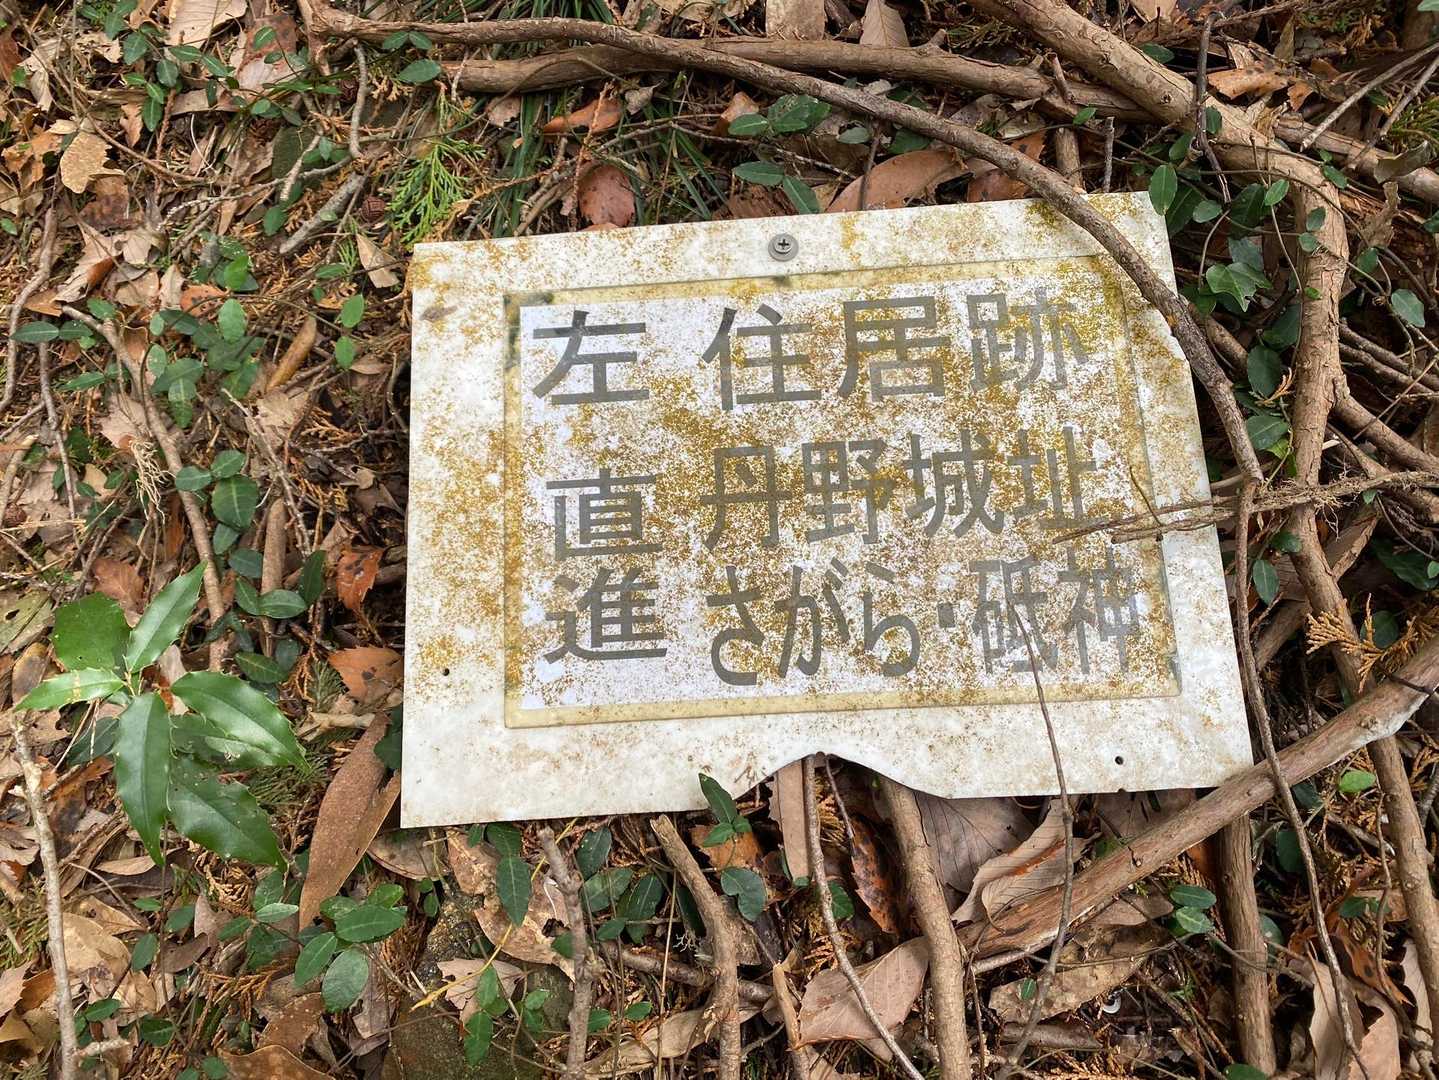 左 住居跡
直進 丹野城址
さがら・砥神